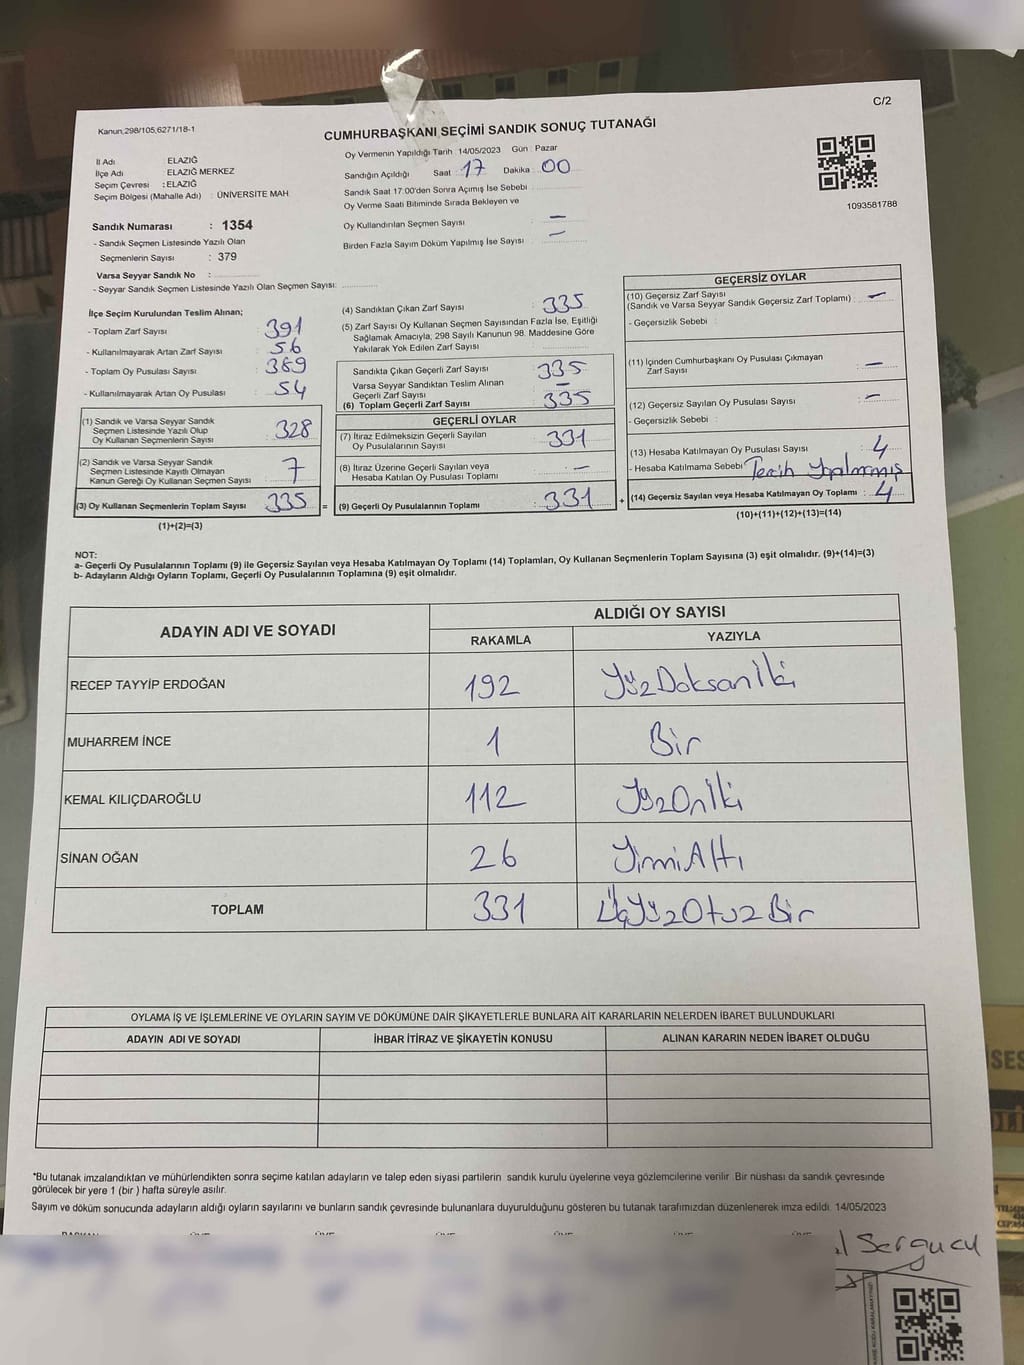 C/2
Kanun,298/105,6271/18-1
CUMHURBAŞKANI SEÇİMİ SANDIK SONUÇ TUTANAĞI
İl Adı : ELAZIĞ
İlçe Adı : ELAZIĞ MERKEZ
Seçim Çevresi : ELAZIĞ
Seçim Bölgesi (Mahalle Adı) : ÜNİVERSİTE MAH
Oy Vermenin Yapıldığı Tarih : 14/05/2023 Gün : Pazar
Sandığın Açıldığı Saat : 17 Dakika : 00
Sandık Saat 17:00'den Sonra Açımış İse Sebebi :
Oy Verme Saati Bitiminde Sırada Bekleyen ve
Oy Kullandırılan Seçmen Sayısı : –
Birden Fazla Sayım Döküm Yapılmış İse Sayısı : –
1093581788
Sandık Numarası : 1354
- Sandık Seçmen Listesinde Yazılı Olan
Seçmenlerin Sayısı : 379
Varsa Seyyar Sandık No :
- Seyyar Sandık Seçmen Listesinde Yazılı Olan Seçmen Sayısı:
İlçe Seçim Kurulundan Teslim Alınan;
- Toplam Zarf Sayısı : 391
- Kullanılmayarak Artan Zarf Sayısı : 56
- Toplam Oy Pusulası Sayısı : 389
- Kullanılmayarak Artan Oy Pusulası : 54
(1) Sandık ve Varsa Seyyar Sandık
Seçmen Listesinde Yazılı Olup
Oy Kullanan Seçmenlerin Sayısı : 328
(2) Sandık ve Varsa Seyyar Sandık
Seçmen Listesinde Kayıtlı Olmayan
Kanun Gereği Oy Kullanan Seçmen Sayısı : 7
(3) Oy Kullanan Seçmenlerin Toplam Sayısı : 335 =
(1)+(2)=(3)
(4) Sandıktan Çıkan Zarf Sayısı : 335
(5) Zarf Sayısı Oy Kullanan Seçmen Sayısından Fazla İse, Eşitliği
Sağlamak Amacıyla, 298 Sayılı Kanunun 98. Maddesine Göre
Yakılarak Yok Edilen Zarf Sayısı :
Sandıkta Çıkan Geçerli Zarf Sayısı : 335
Varsa Seyyar Sandıktan Teslim Alınan
Geçerli Zarf Sayısı : –
(6) Toplam Geçerli Zarf Sayısı : 335
GEÇERLİ OYLAR
(7) İtiraz Edilmeksizin Geçerli Sayılan
Oy Pusulalarının Sayısı : 331
(8) İtiraz Üzerine Geçerli Sayılan veya
Hesaba Katılan Oy Pusulası Toplamı : –
(9) Geçerli Oy Pusulalarının Toplamı : 331 +
GEÇERSİZ OYLAR
(10) Geçersiz Zarf Sayısı
(Sandık ve Varsa Seyyar Sandık Geçersiz Zarf Toplamı) : –
- Geçersizlik Sebebi :
(11) İçinden Cumhurbaşkanı Oy Pusulası Çıkmayan
Zarf Sayısı : –
(12) Geçersiz Sayılan Oy Pusulası Sayısı : –
- Geçersizlik Sebebi :
(13) Hesaba Katılmayan Oy Pusulası Sayısı : 4
- Hesaba Katılmama Sebebi : Tercih Yapılmamış
(14) Geçersiz Sayılan veya Hesaba Katılmayan Oy Toplamı : 4
(10)+(11)+(12)+(13)=(14)
NOT:
a- Geçerli Oy Pusulalarının Toplamı (9) ile Geçersiz Sayılan veya Hesaba Katılmayan Oy Toplamı (14) Toplamları, Oy Kullanan Seçmenlerin Toplam Sayısına (3) eşit olmalıdır. (9)+(14)=(3)
b- Adayların Aldığı Oyların Toplamı, Geçerli Oy Pusulalarının Toplamına (9) eşit olmalıdır.
ADAYIN ADI VE SOYADI
ALDIĞI OY SAYISI
RAKAMLA YAZIYLA
RECEP TAYYİP ERDOĞAN 192 YüzDoksanİki
MUHARREM İNCE 1 Bir
KEMAL KILIÇDAROĞLU 112 YüzOnİki
SİNAN OĞAN 26 YirmiAltı
TOPLAM 331 ÜçYüzOtuzBir
OYLAMA İŞ VE İŞLEMLERİNE VE OYLARIN SAYIM VE DÖKÜMÜNE DAİR ŞİKAYETLERLE BUNLARA AİT KARARLARIN NELERDEN İBARET BULUNDUKLARI
ADAYIN ADI VE SOYADI İHBAR İTİRAZ VE ŞİKAYETİN KONUSU ALINAN KARARIN NEDEN İBARET OLDUĞU
*Bu tutanak imzalandıktan ve mühürlendikten sonra seçime katılan adayların ve talep eden siyasi partilerin sandık kurulu üyelerine veya gözlemcilerine verilir .Bir nüshası da sandık çevresinde
görülecek bir yere 1 (bir ) hafta süreyle asılır.
Sayım ve döküm sonucunda adayların aldığı oyların sayılarını ve bunların sandık çevresinde bulunanlara duyurulduğunu gösteren bu tutanak tarafımızdan düzenlenerek imza edildi. 14/05/2023